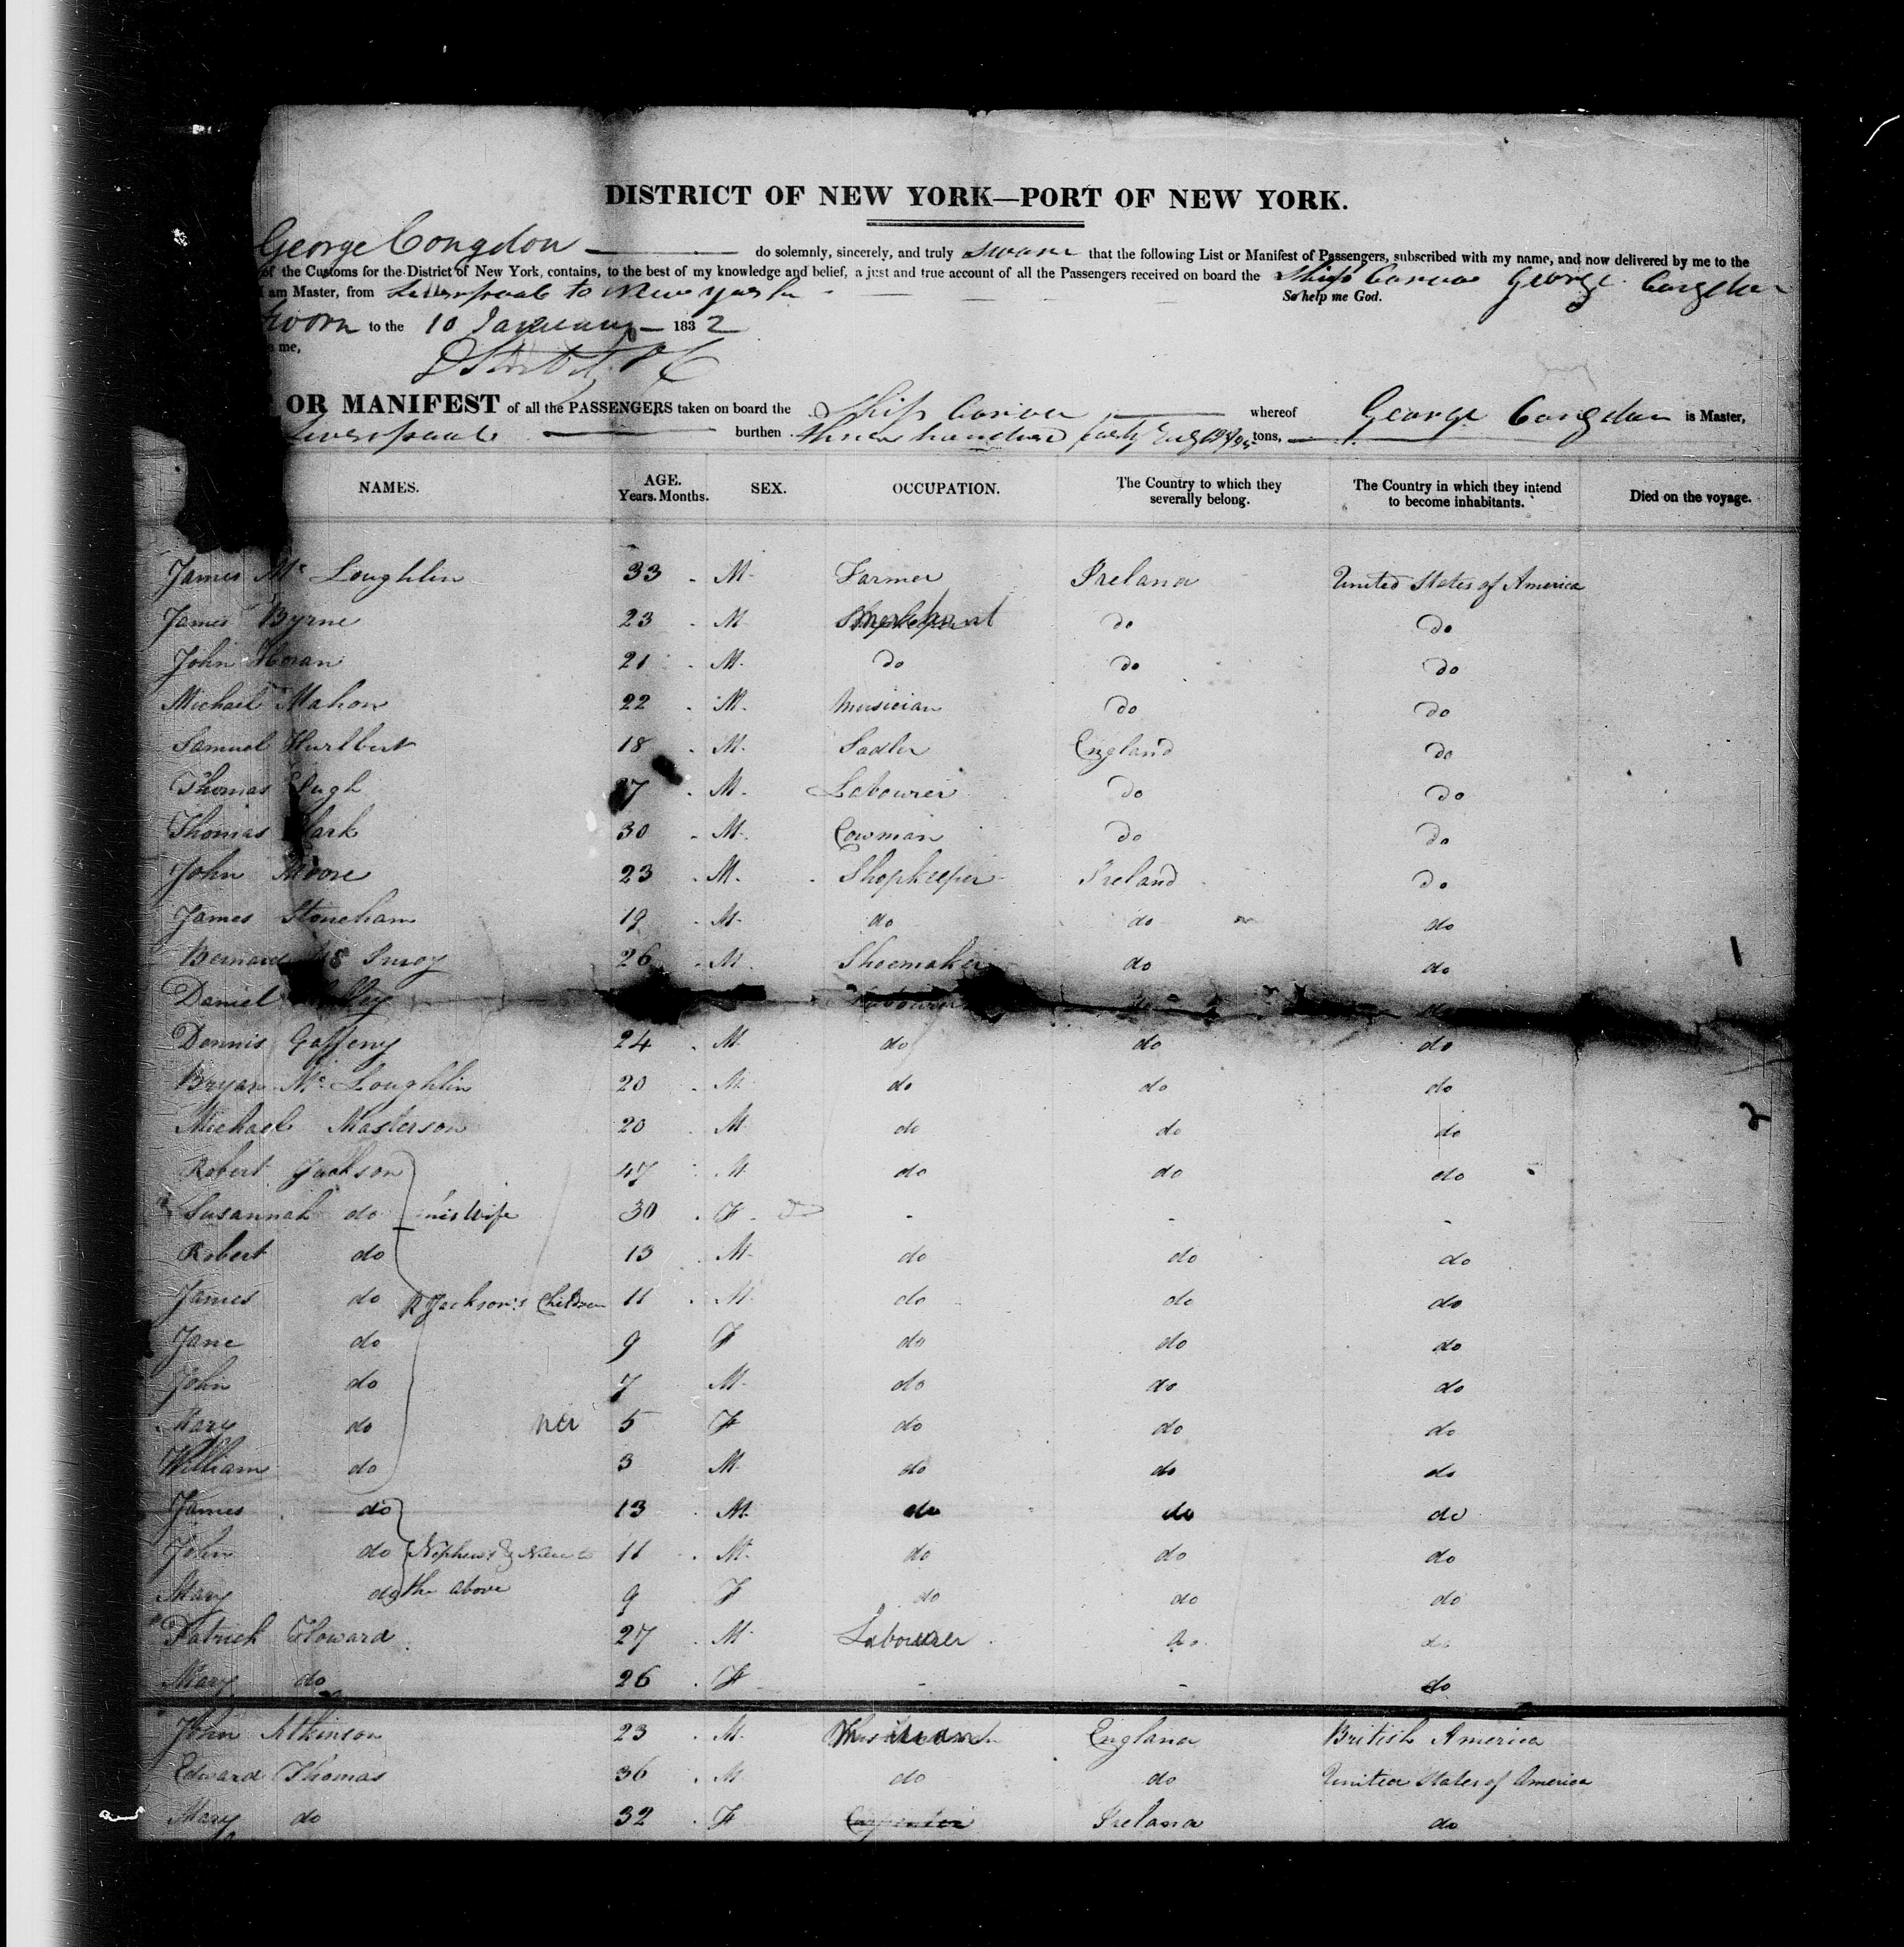 DISTRICT OF NEW YORK—PORT OF NEW YORK.
George Congdon do solemnly, sincerely, and truly swear that the following List or Manifest of Passengers, subscribed with my name, and now delivered by me to the
of the Customs for the District of New York, contains, to the best of my knowledge and belief, a just and true account of all the Passengers received on board the Ship George Congdon
I am Master, from Liverpool to New York So help me God.
to the 10 January 1832
me,
OR MANIFEST of all the PASSENGERS taken on board the Ship whereof George Congdon is Master,
Liverpool burthen three hundred tons,
NAMES. AGE. Years. Months. SEX. OCCUPATION. The Country to which they severally belong. The Country in which they intend to become inhabitants. Died on the voyage.
James Mc Loughlin 33 M. Farmer Ireland United States of America
James Byrne 23 M do do
John Horan 21 M. do do do
Michael Mahon 22 M. Musician do do
Samuel Hurlbert 18 M. Sadler England do
Thomas 27 M. Labourer do do
Thomas Clark 30 M. Cowman do do
John Moore 23 M. Shopkeeper Ireland do
James Stoneham 19 M. do do do
Bernard 26 M. Shoemaker do do
Daniel Labourer do
Dennis Gaffeny 24 M. do do do
Bryan Mc Loughlin 20 M. do do do
Michael Masterson 20 M do do do
Robert Jackson 47 M do do do
Susannah do his Wife 30 F - - -
Robert do 13 M. do do do
James do R Jackson's Children 11 M. do do do
Jane do 9 F do do do
John do 7 M. do do do
Mary do 5 F do do do
William do 3 M. do do do
James do 13 M. do do do
John do Nephews & Niece to 11 M. do do do
Mary do the above 9 F do do do
Patrick Howard 27 M. Labourer do do
Mary do 26 F - - do
John Atkinson 23 M. England British America
Edward Thomas 36 M do do United States of America
Mary do 32 F Carpenter Ireland do
1
2